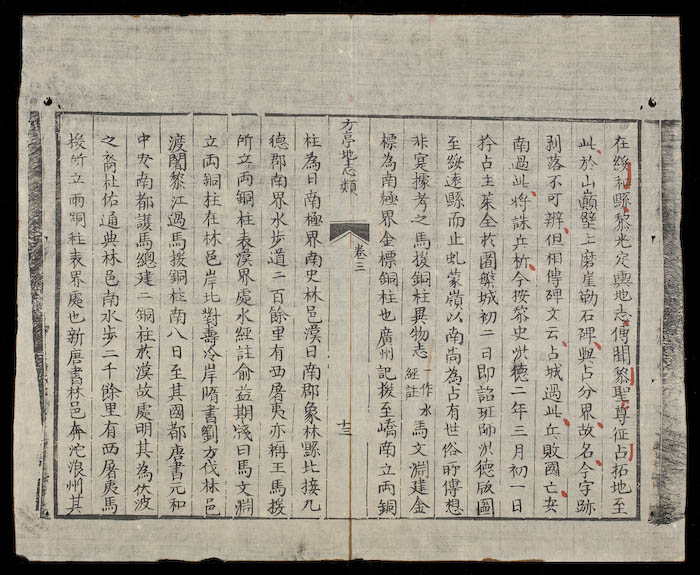 在綏和縣黎光定輿地志傳聞黎聖尊征占拓地至
此於山巔壁上磨崖勒石碑與占分界故名今字跡
剥落不可辨但相傳碑文云占城過此兵敗國亡安
南過此將誅兵折今按黎史洪德二年三月初一日
拎占主茶全於圖槃城初二日即詔班師洪德版圖
至綏遠縣而止虬蒙嶺以南尚為占有世俗所傳想
非寔據考之馬援銅柱異物志一作水經註馬文淵建金
標為南極界金標銅柱也廣州記援至嶠南立兩銅
方亭地志類 卷三 十三
柱為日南極界南史林邑漢日南郡象林縣比接九
德郡南界水步道二百餘里有西屠夷亦稱王馬援
所立兩銅柱表漢界處水經註俞益期牋曰馬文淵
立兩銅柱在林邑岸北對壽冷岸隋書劉方伐林邑
渡闍黎江過馬援銅柱南八日至其國都唐書元和
中安南都護馬總建二銅柱於漢故處明其為伏波
之裔杜佑通典林邑南水步二千餘里有西屠夷馬
援所立兩銅柱表界處也新唐書林邑奔沱浪州其